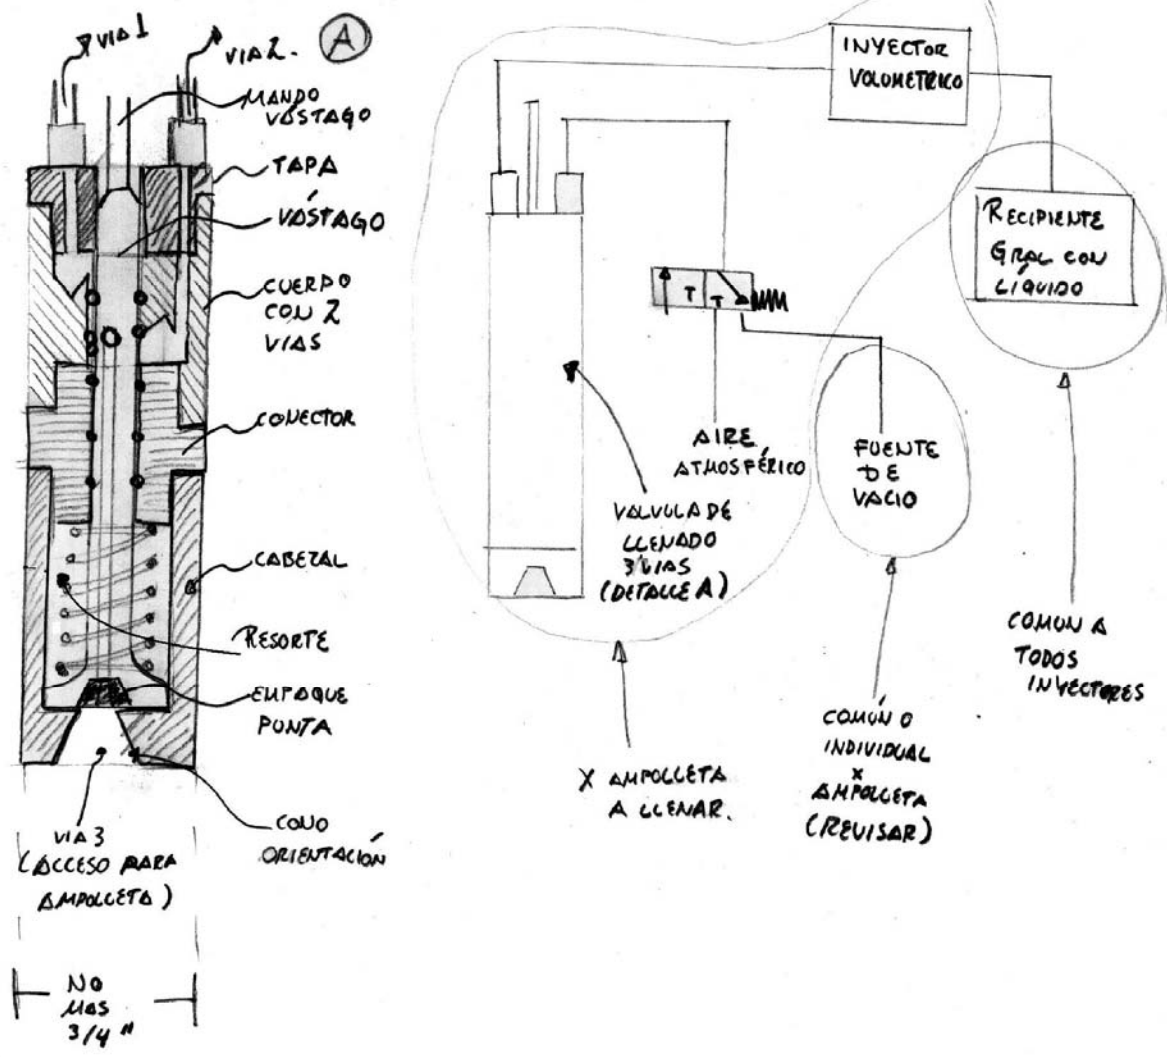 VIA 1
VIA 2.
A
MANDO
VÁSTAGO
TAPA
VÁSTAGO
CUERPO
CON 2
VIAS
CONECTOR
CABEZAL
RESORTE
EMPAQUE
PUNTA
CONO
ORIENTACIÓN
VIA 3
(ACCESO PARA
AMPOLLETA)
NO
MAS
3/4"
INYECTOR
VOLUMETRICO
RECIPIENTE
GRAL CON
LÍQUIDO
T T
AIRE
ATMOSFÉRICO
FUENTE
DE
VACIO
VALVULA DE
LLENADO
3 VIAS
(DETALLE A)
X AMPOLLETA
A LLENAR.
COMÚN O
INDIVIDUAL
X
AMPOLLETA
(REVISAR)
COMUN A
TODOS
INYECTORES